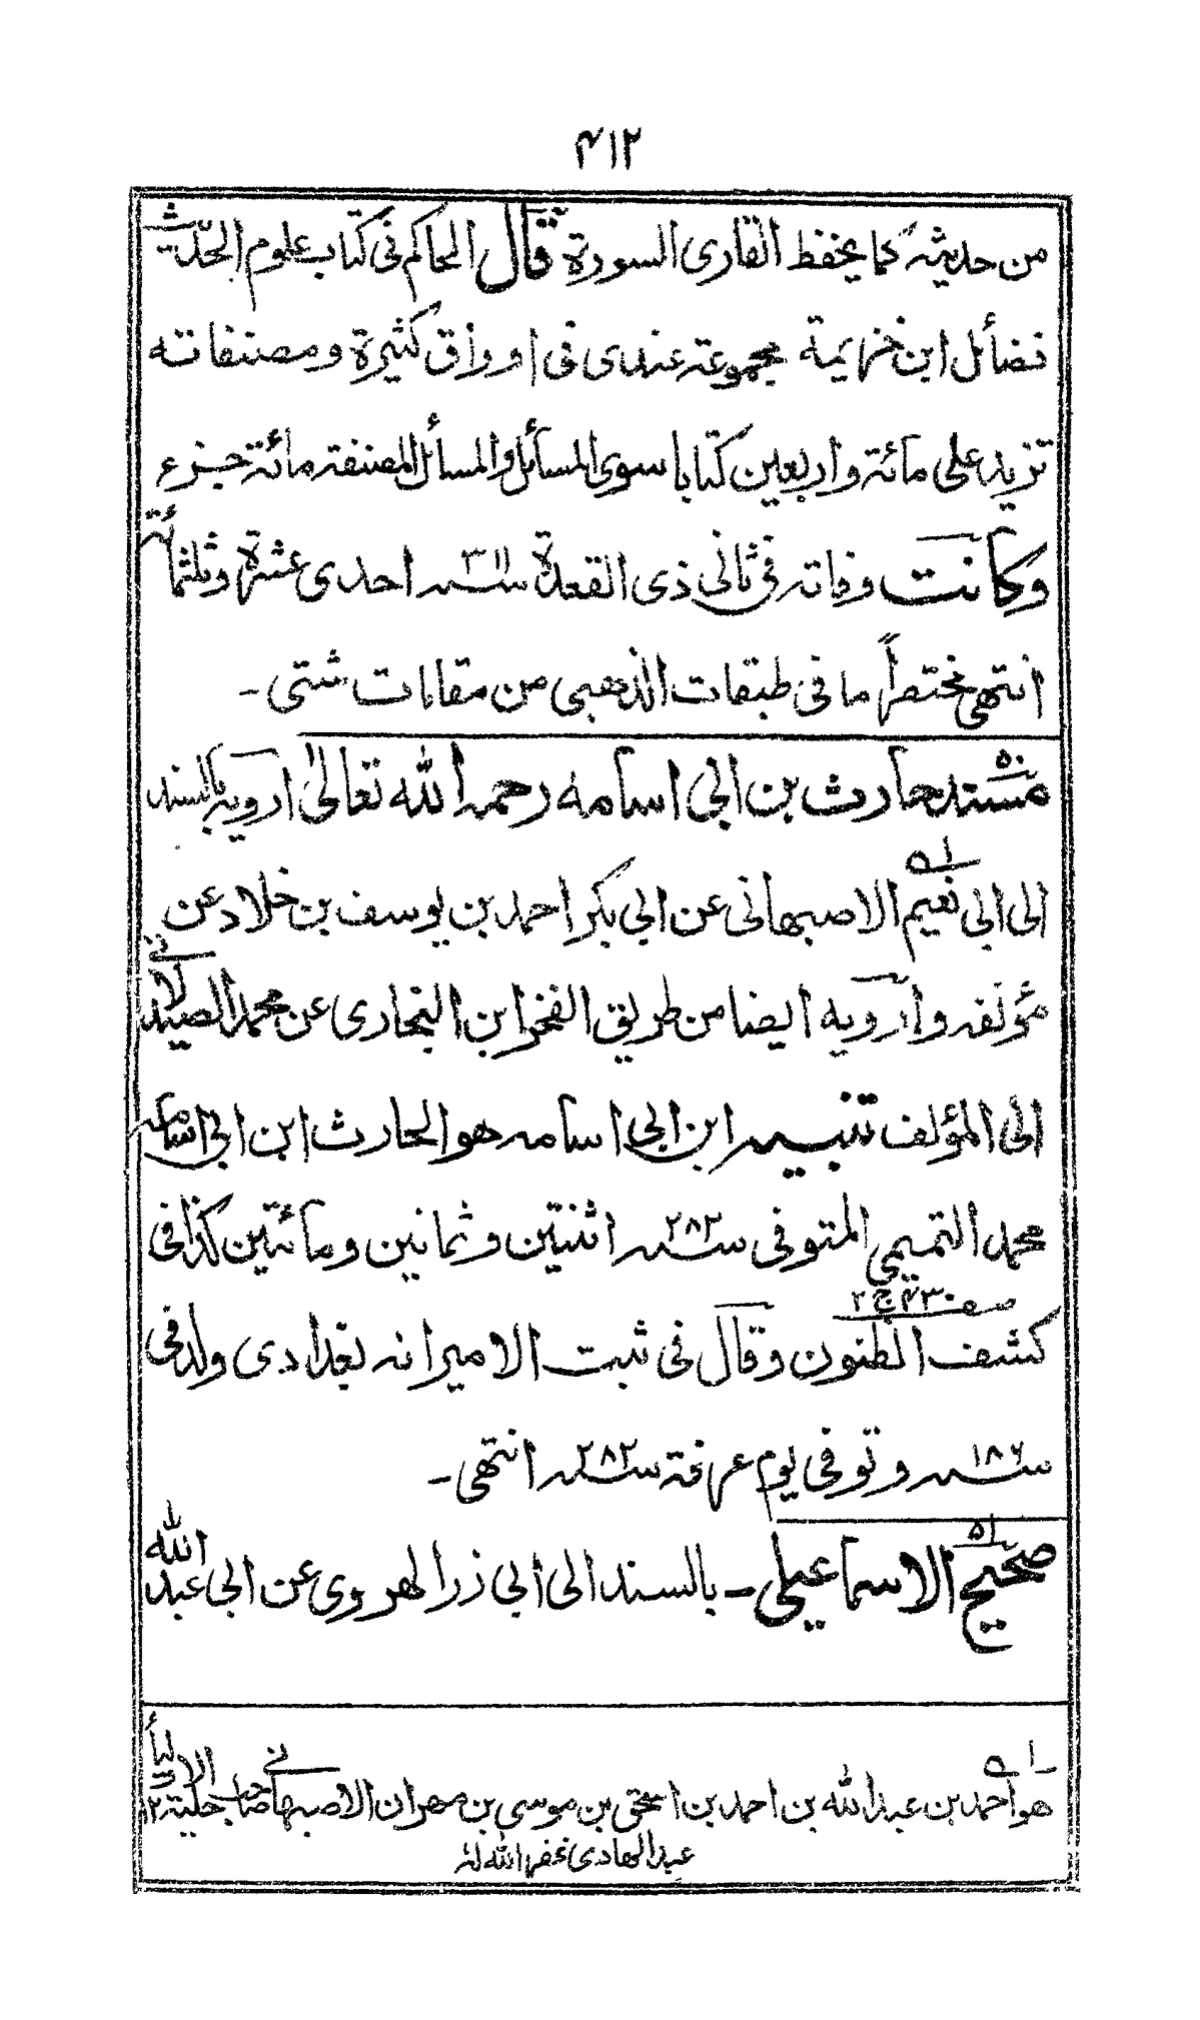 ۴۱۲
من حديثه كما يحفظ القارى السورة قال الحاكم فى كتاب علوم الحديث
فضائل ابن خزيمة مجموعة عندى فى اوراق كثيرة ومصنفاته
تزيد على مائة واربعين كتابا سوى المسائل والمسائل المصنفة مائة جزء
وكانت وفاته فى ثانى ذى القعدة سنه ۳۱۱ احدى عشرة وثلثمائة
انتهى مختصراً ما فى طبقات الذهبى من مقامات شتى ـ
۵۰ مسند حارث بن ابى اسامه رحمه الله تعالى ارويه بالسند
الى ابى نعيم الاصبهانى عن ابى بكر احمد بن يوسف بن خلاد عن
مؤلفه وارويه ايضا من طريق الفخر ابن البخارى عن محمد الصيدلانى
الى المؤلف تنبيه ابن ابى اسامه هو الحارث ابن ابى اسامه
محمد التميمى المتوفى سنه ۲۸۲ اثنتين وثمانين ومائتين كذا فى
كشف الظنون صه ۴۳۰ ج ۲ وقال فى ثبت الامير انه بغدادى ولد فى
سنه ۱۸۶ وتوفى يوم عرفة سنه ۲۸۲ انتهى ـ
۵۱ صحيح الاسماعيلى ـ بالسند الى ابى ذر الهروى عن ابى عبد الله
ـه۱ هو احمد بن عبد الله بن احمد بن اسحق بن موسى بن مهران الاصبهانى صاحب حلية الاولياء ۱۲
عبد الهادى غفر الله له